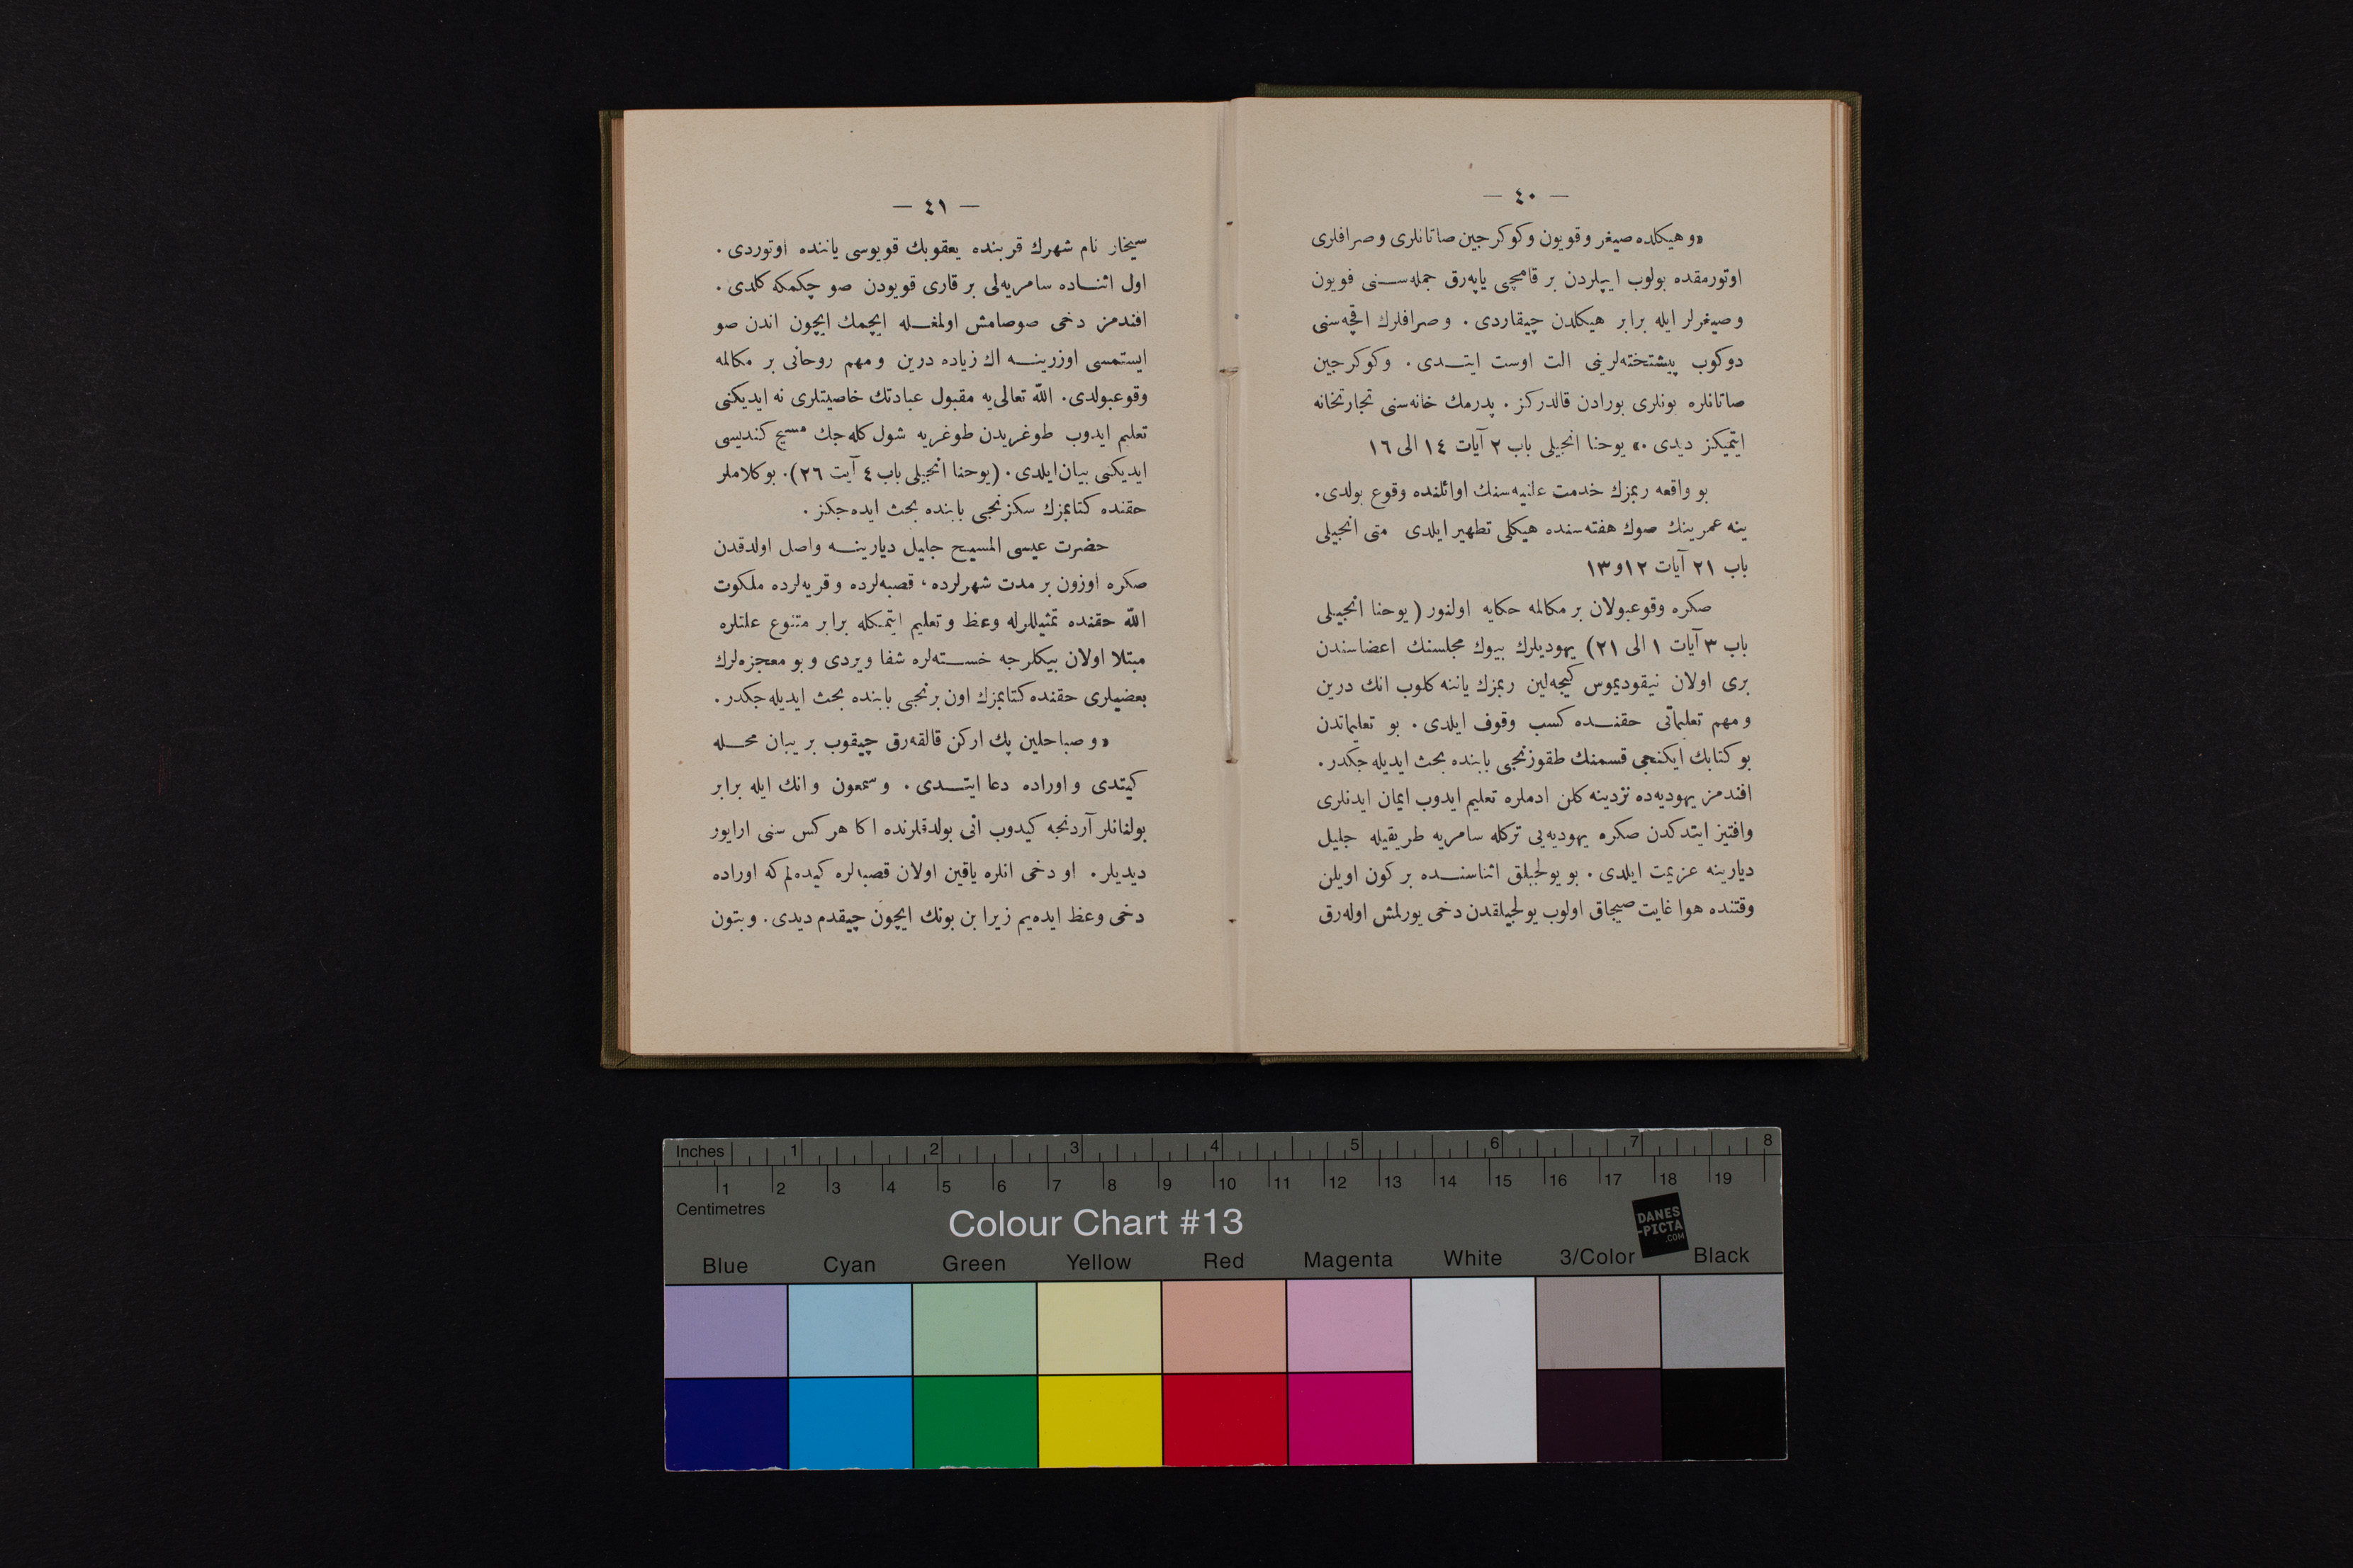 — ٤٠ —
«و هيكلده صيغر و قويون و كوكرجين صاتانلرى و صرافلرى
اوتورمقده بولوب ايپلردن بر قامچى ياپه‌رق جمله‌سنى قويون
و صيغرلر ايله برابر هيكلدن چيقاردى . و صرافلرك اقچه‌سنى
دوكوب پيشتخته‌لرينى الت اوست ايتدى . و كوكرجين
صاتانلره بونلرى بورادن قالدركز . پدرمك خانه‌سنى تجارتخانه
ايتميكز ديدى .» يوحنا انجيلى باب ٢ آيات ١٤ الى ١٦
بو واقعه ربمزك خدمت علنيه‌سنك اوائلنده وقوع بولدى.
ينه عمرينك صوك هفته‌سنده هيكلى تطهير ايلدى متى انجيلى
باب ٢١ آيات ١٢و١٣
صكره وقوعبولان بر مكالمه حكايه اولنور (يوحنا انجيلى
باب ٣ آيات ١ الى ٢١) يهوديلرك بيوك مجلسنك اعضاسندن
برى اولان نيقوديموس كيجه‌لين ربمزك ياننه كلوب انك درين
و مهم تعليماتى حقنده كسب وقوف ايلدى . بو تعليماتدن
بو كتابك ايكنجى قسمنك طقوزنجى بابنده بحث ايديله‌جكدر.
افندمز يهوديه‌ده نزدينه كلن ادملره تعليم ايدوب ايمان ايدنلرى
وافتيز ايتدكدن صكره يهوديه‌يى تركله سامريه طريقيله جليل
ديارينه عزيمت ايلدى . بو يولجيلق اثناسنده بر كون اويلن
وقتنده هوا غايت صيجاق اولوب يولجيلقدن دخى يورلمش اوله‌رق
— ٤١ —
سيخار نام شهرك قربنده يعقوبك قويوسى ياننده اوتوردى .
اول اثناده سامريه‌لى بر قارى قويودن صو چكمكه كلدى .
افندمز دخى صوصامش اولمغله ايچمك ايچون اندن صو
ايستمسى اوزرينه اك زياده درين و مهم روحانى بر مكالمه
وقوعبولدى. الله تعالى‌يه مقبول عبادتك خاصيتلرى نه ايديكنى
تعليم ايدوب طوغريدن طوغريه شول كله‌جك مسيح كنديسى
ايديكنى بيان‌ايلدى . (يوحنا انجيلى باب ٤ آيت ٢٦). بوكلاملر
حقنده كتابمزك سكزنجى بابنده بحث ايده‌جكز .
حضرت عيسى المسيح جليل ديارينه واصل اولدقدن
صكره اوزون بر مدت شهرلرده ، قصبه‌لرده و قريه‌لرده ملكوت
الله حقنده تمثيللرله وعظ و تعليم ايتمكله برابر متنوع علتلره
مبتلا اولان بيكلرجه خسته‌لره شفا ويردى و بو معجزه‌لرك
بعضيلرى حقنده كتابمزك اون برنجى بابنده بحث ايديله‌جكدر .
«و صباحلين پك اركن قالقه‌رق چيقوب بر يبان محله
كيتدى و اوراده دعا ايتدى . و سمعون و انك ايله برابر
بولنانلر آردنجه كيدوب انى بولدقلرنده اكا هر كس سنى ارايور
ديديلر . او دخى انلره ياقين اولان قصبه‌لره كيده‌لم كه اوراده
دخى وعظ ايده‌يم زيرا بن بونك ايچون چيقدم ديدى. و بتون
Inches 1 2 3 4 5 6 7 8
1 2 3 4 5 6 7 8 9 10 11 12 13 14 15 16 17 18 19
Centimetres
Colour Chart #13
DANES
-PICTA
.COM
Blue Cyan Green Yellow Red Magenta White 3/Color Black